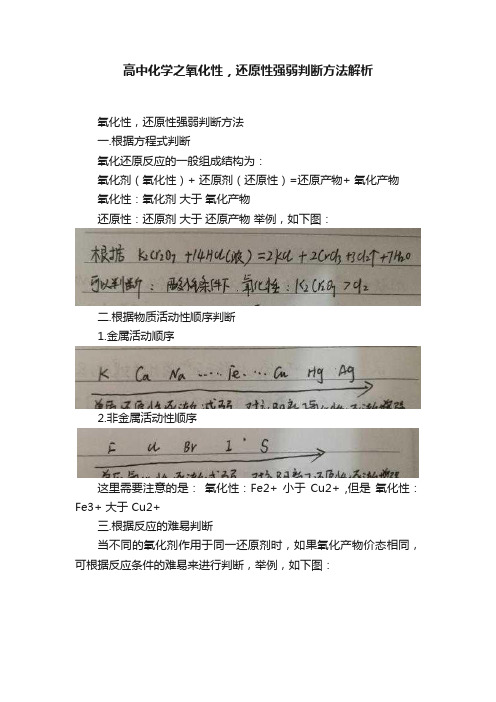 高中化学之氧化性，还原性强弱判断方法解析
氧化性，还原性强弱判断方法
一.根据方程式判断
氧化还原反应的一般组成结构为：
氧化剂（氧化性）+ 还原剂（还原性）=还原产物+ 氧化产物
氧化性：氧化剂 大于 氧化产物
还原性：还原剂 大于 还原产物 举例，如下图：
根据 K2Cr2O7 +14HCl(浓) =2KCl + 2CrCl3 +3Cl2↑+7H2O
可以判断：酸性条件下 氧化性：K2Cr2O7 >Cl2
二.根据物质活动性顺序判断
1.金属活动顺序
K Ca Na ····· Fe ··· Cu Hg Ag
2.非金属活动性顺序
F Cl Br I S
这里需要注意的是： 氧化性：Fe2+ 小于 Cu2+ ,但是 氧化性：
Fe3+ 大于 Cu2+
三.根据反应的难易判断
当不同的氧化剂作用于同一还原剂时，如果氧化产物价态相同，
可根据反应条件的难易来进行判断，举例，如下图：